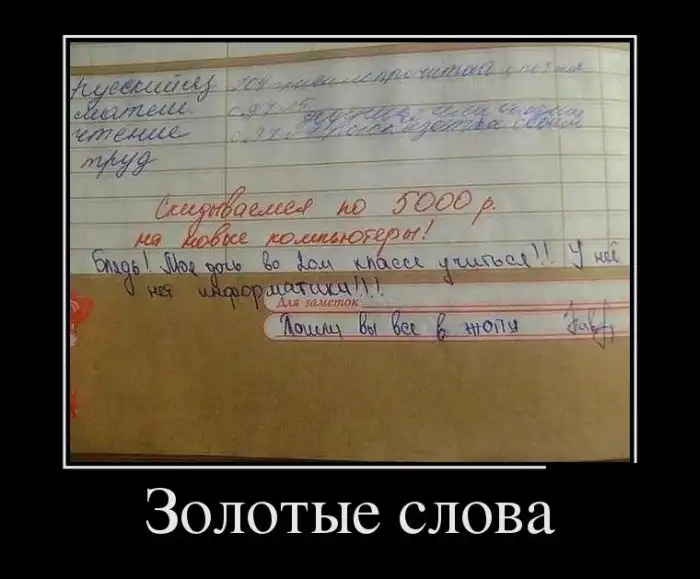 Русский яз 104 правило прочитать
матем. с. 97 № 15
чтение с. 92
труд
Скидываемся по 5000 р.
на новые компьютеры!
Блядь! Моя дочь во 2ом классе учиться!! У неё
нет информатики!!!!
Для заметок
Пошли вы все в жопу
Золотые слова